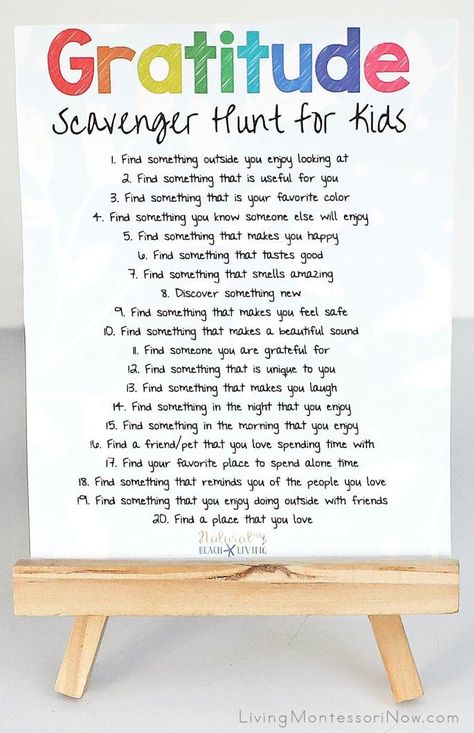 Gratitude
Scavenger Hunt for Kids
1. Find something outside you enjoy looking at
2. Find something that is useful for you
3. Find something that is your favorite color
4. Find something you know someone else will enjoy
5. Find something that makes you happy
6. Find something that tastes good
7. Find something that smells amazing
8. Discover something new
9. Find something that makes you feel safe
10. Find something that makes a beautiful sound
11. Find someone you are grateful for
12. Find something that is unique to you
13. Find something that makes you laugh
14. Find something in the night that you enjoy
15. Find something in the morning that you enjoy
16. Find a friend/pet that you love spending time with
17. Find your favorite place to spend alone time
18. Find something that reminds you of the people you love
19. Find something that you enjoy doing outside with friends
20. Find a place that you love
Natural
BEACH LIVING
LivingMontessoriNow.com